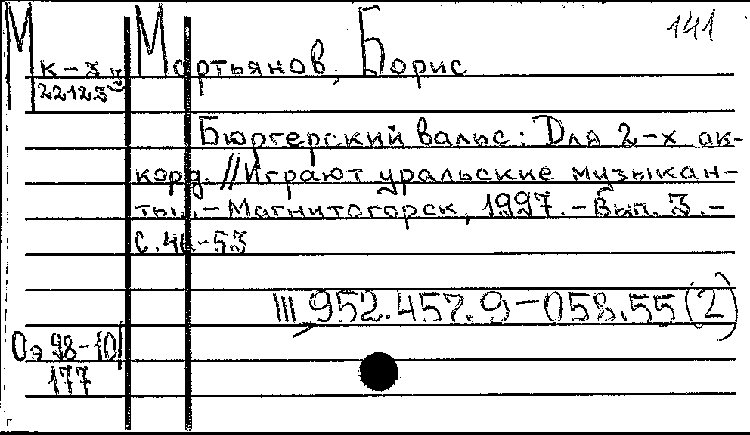 141
М Мартьянов, Борис
к-х
22123
Бюргерский вальс: Для 2-х ак-
корд. // Играют уральские музыкан-
ты. - Магнитогорск, 1997. - Вып. 3. -
С. 53
III 952.457.9-058.55(2)
Оэ 98-10
177